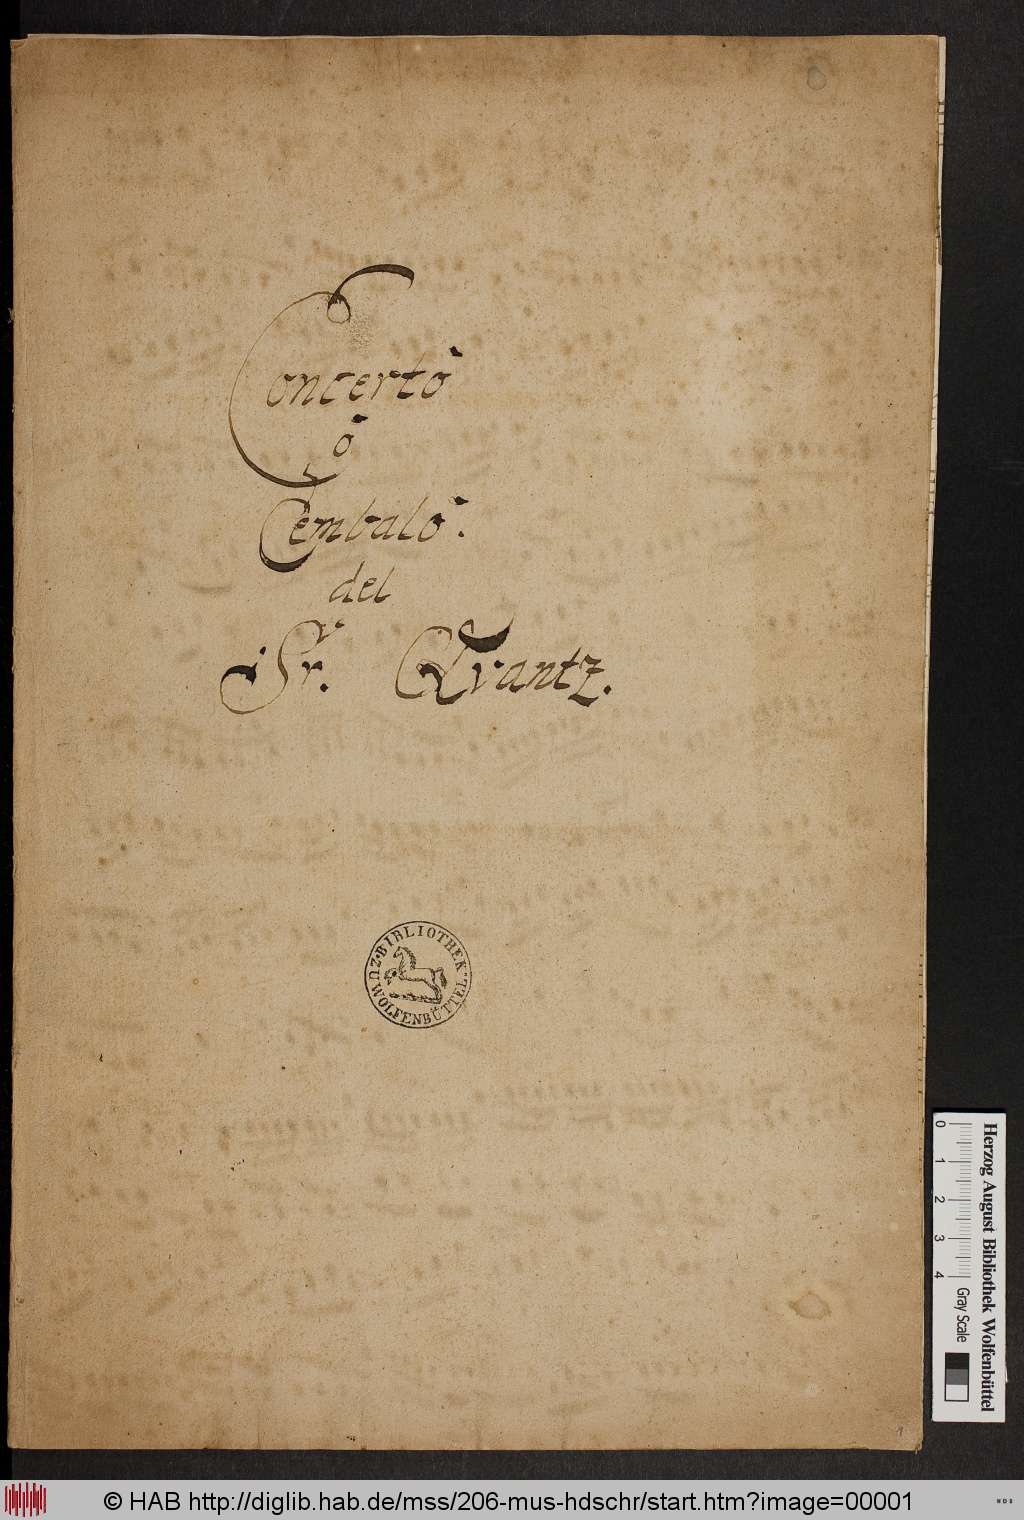 Concerto
ò
Cembalo.
del
Sr. Qvantz.
BIBLIOTHEK · ZU WOLFENBÜTTEL ·
1
Herzog August Bibliothek Wolfenbüttel
0 1 2 3 4
Gray Scale
© HAB http://diglib.hab.de/mss/206-mus-hdschr/start.htm?image=00001